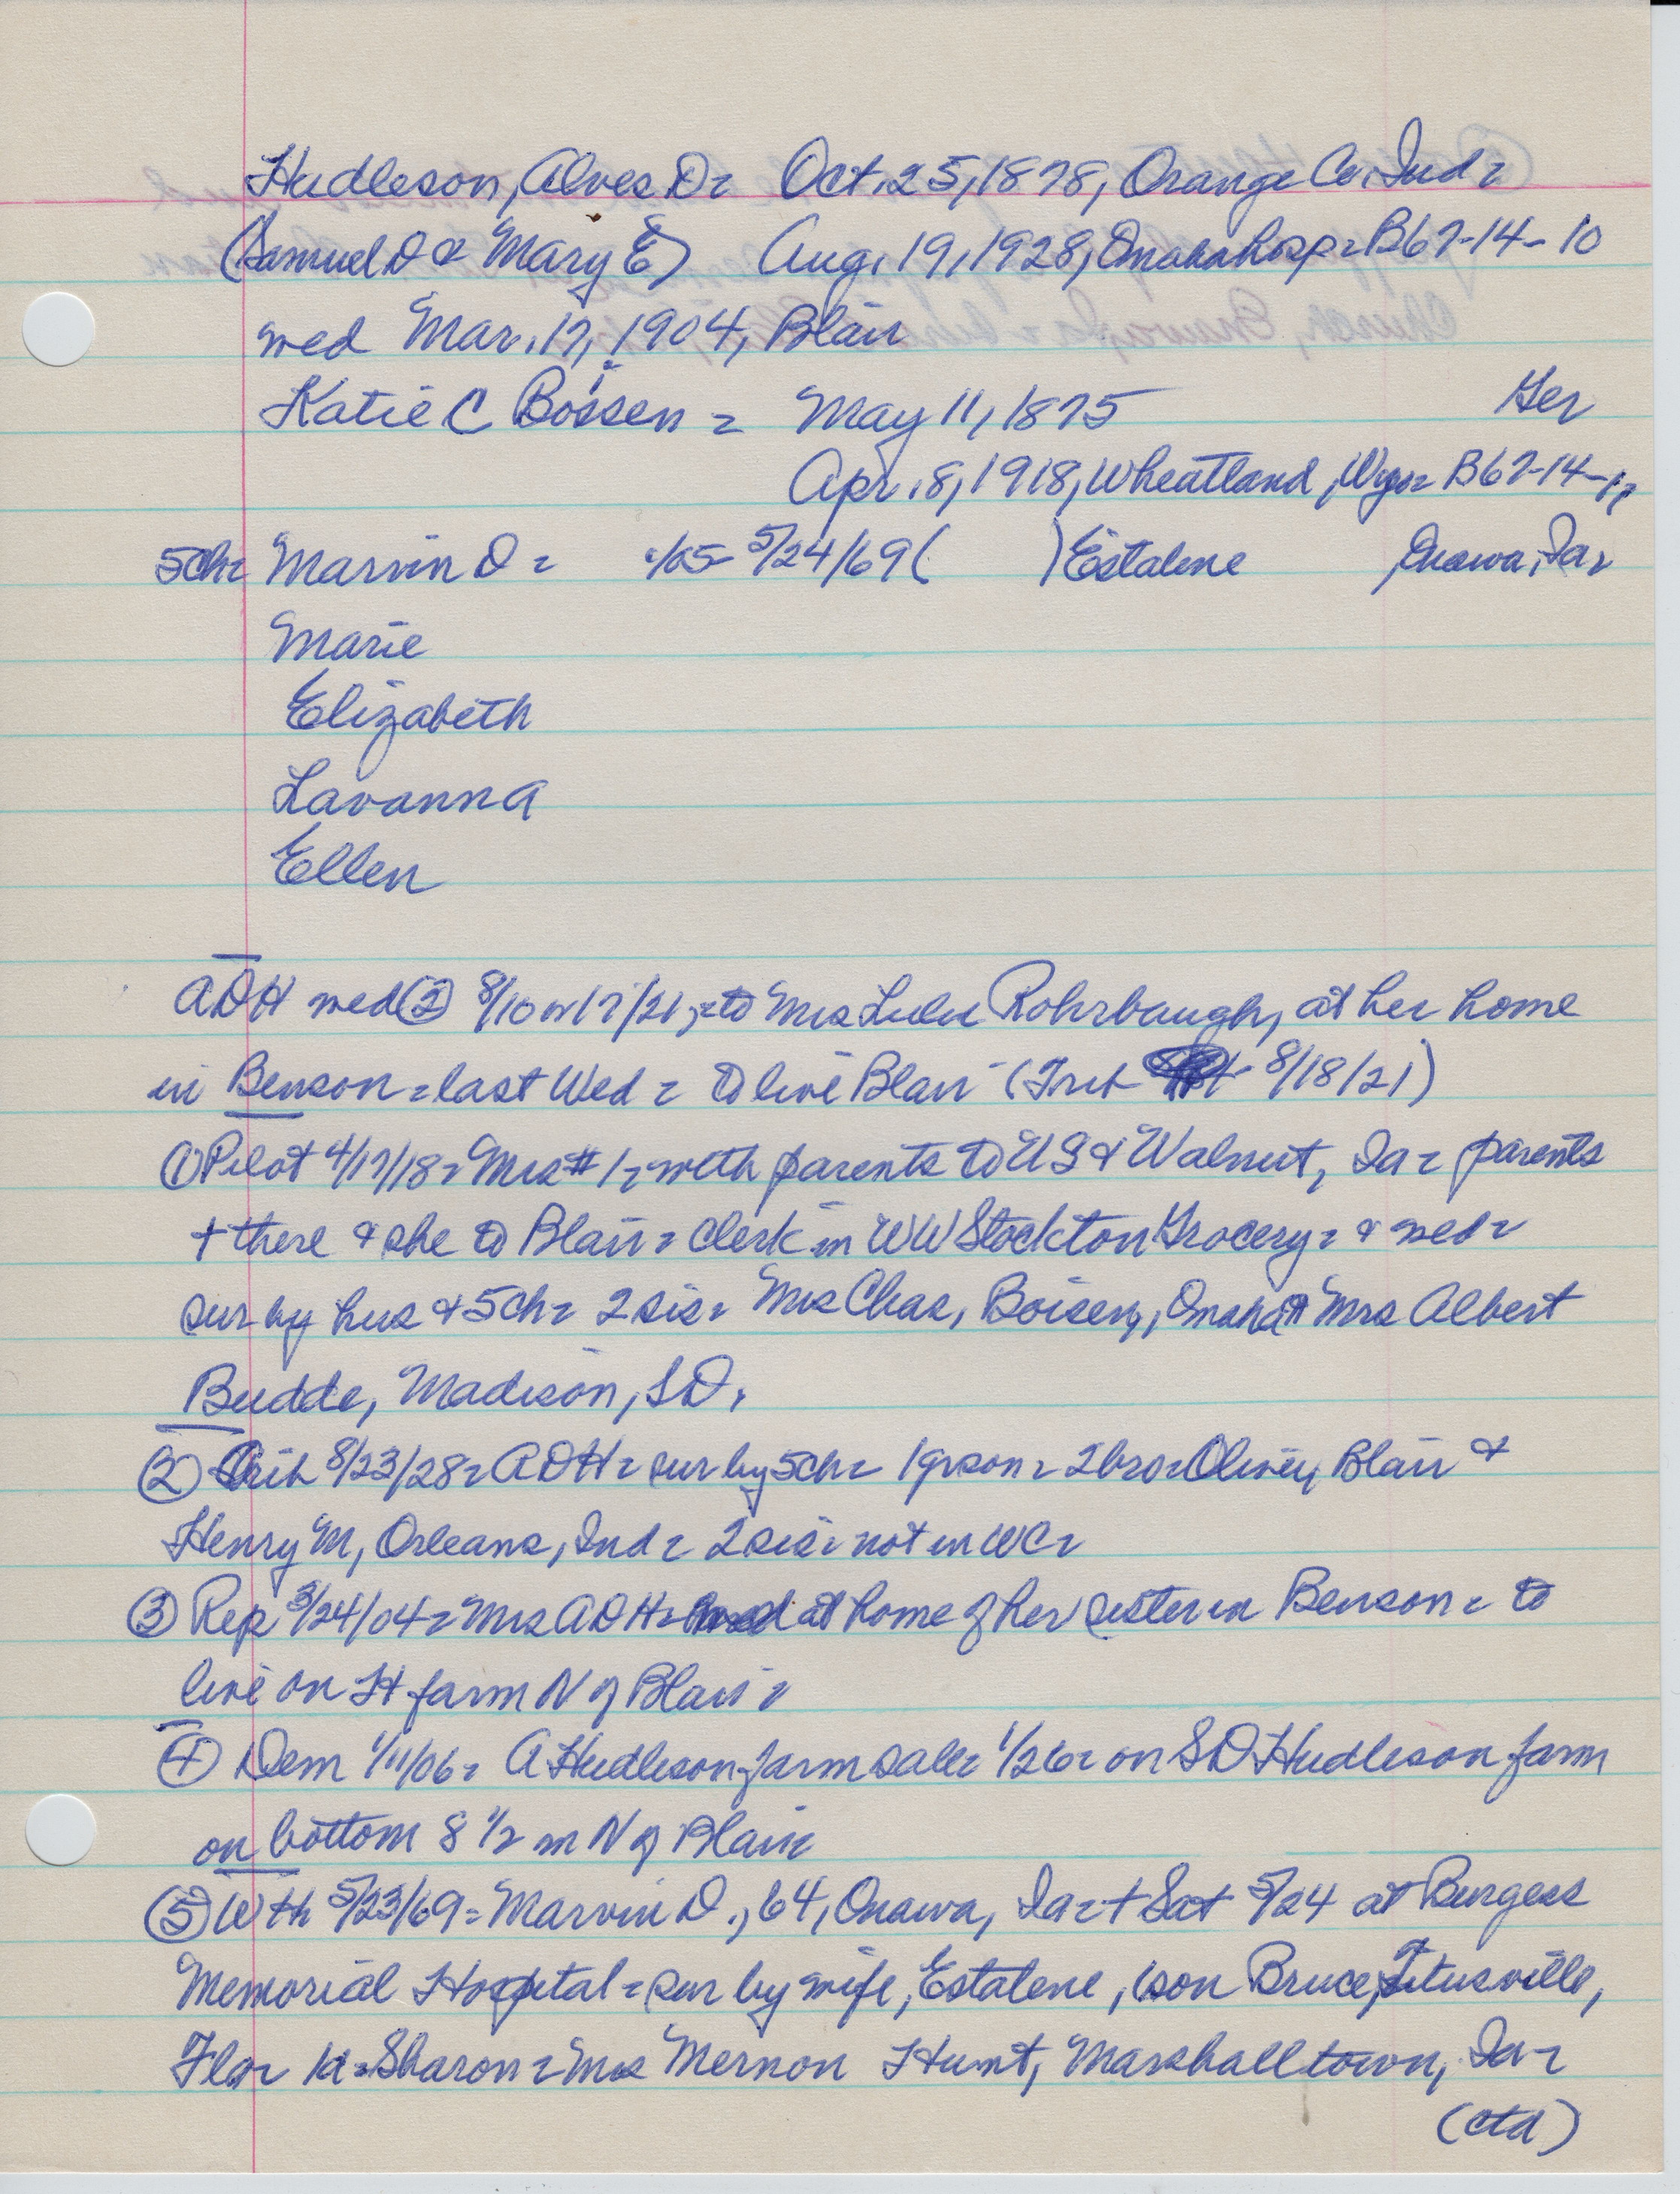 Hudleson, Alves D = Oct. 25, 1878, Orange Co, Ind =
(Samuel D & Mary E) Aug. 19, 1928, Omaha hosp = B67-14-10
wed Mar. 17, 1904, Blair
Katie C Bossen = May 11, 1875 Ger
Apr. 8, 1918, Wheatland, Wyo = B67-14-
5ch = Marvin D = /05- 5/24/69 ( ) Estalene Onawa, Ia =
Marie
Elizabeth
Lavanna
Ellen
ADH wed (2) 8/10 or 17/21, = to Mrs Lulu Rohrbaugh, at her home
in Benson = last Wed = to live Blair (Trib 8/18/21)
(1) Pilot 4/17/18 = Mrs #1, with parents to US & Walnut, Ia = parents
+ there & she to Blair = clerk in WW Stockton Grocery = & wed =
sur by hus & 5ch = 2 sis = Mrs Chas, Boisen, Omaha & Mrs Albert
Budde, Madison, SD.
(2) Trib 8/23/28 = ADH = sur by 5ch = 1 grson = 2 bro = Oliver, Blair &
Henry M, Orleans, Ind = 2 sis = not in WC =
(3) Rep 3/24/04 = Mrs ADH = at home of her sister in Benson = to
live on H farm N of Blair =
(4) Dem 1/11/06 = A Hudleson farm sale = 1/26 = on SD Hudleson farm
on bottom 8 1/2 m N of Blair
(5) WH 5/23/69 = Marvin D., 64, Onawa, Ia = + Sat 5/24 at Burgess
Memorial Hospital = sur by wife, Estalene, 1 son Bruce, Titusville,
Fla = 1d = Sharon = Mrs Mernon Hunt, Marshalltown, Ia =
(ctd)